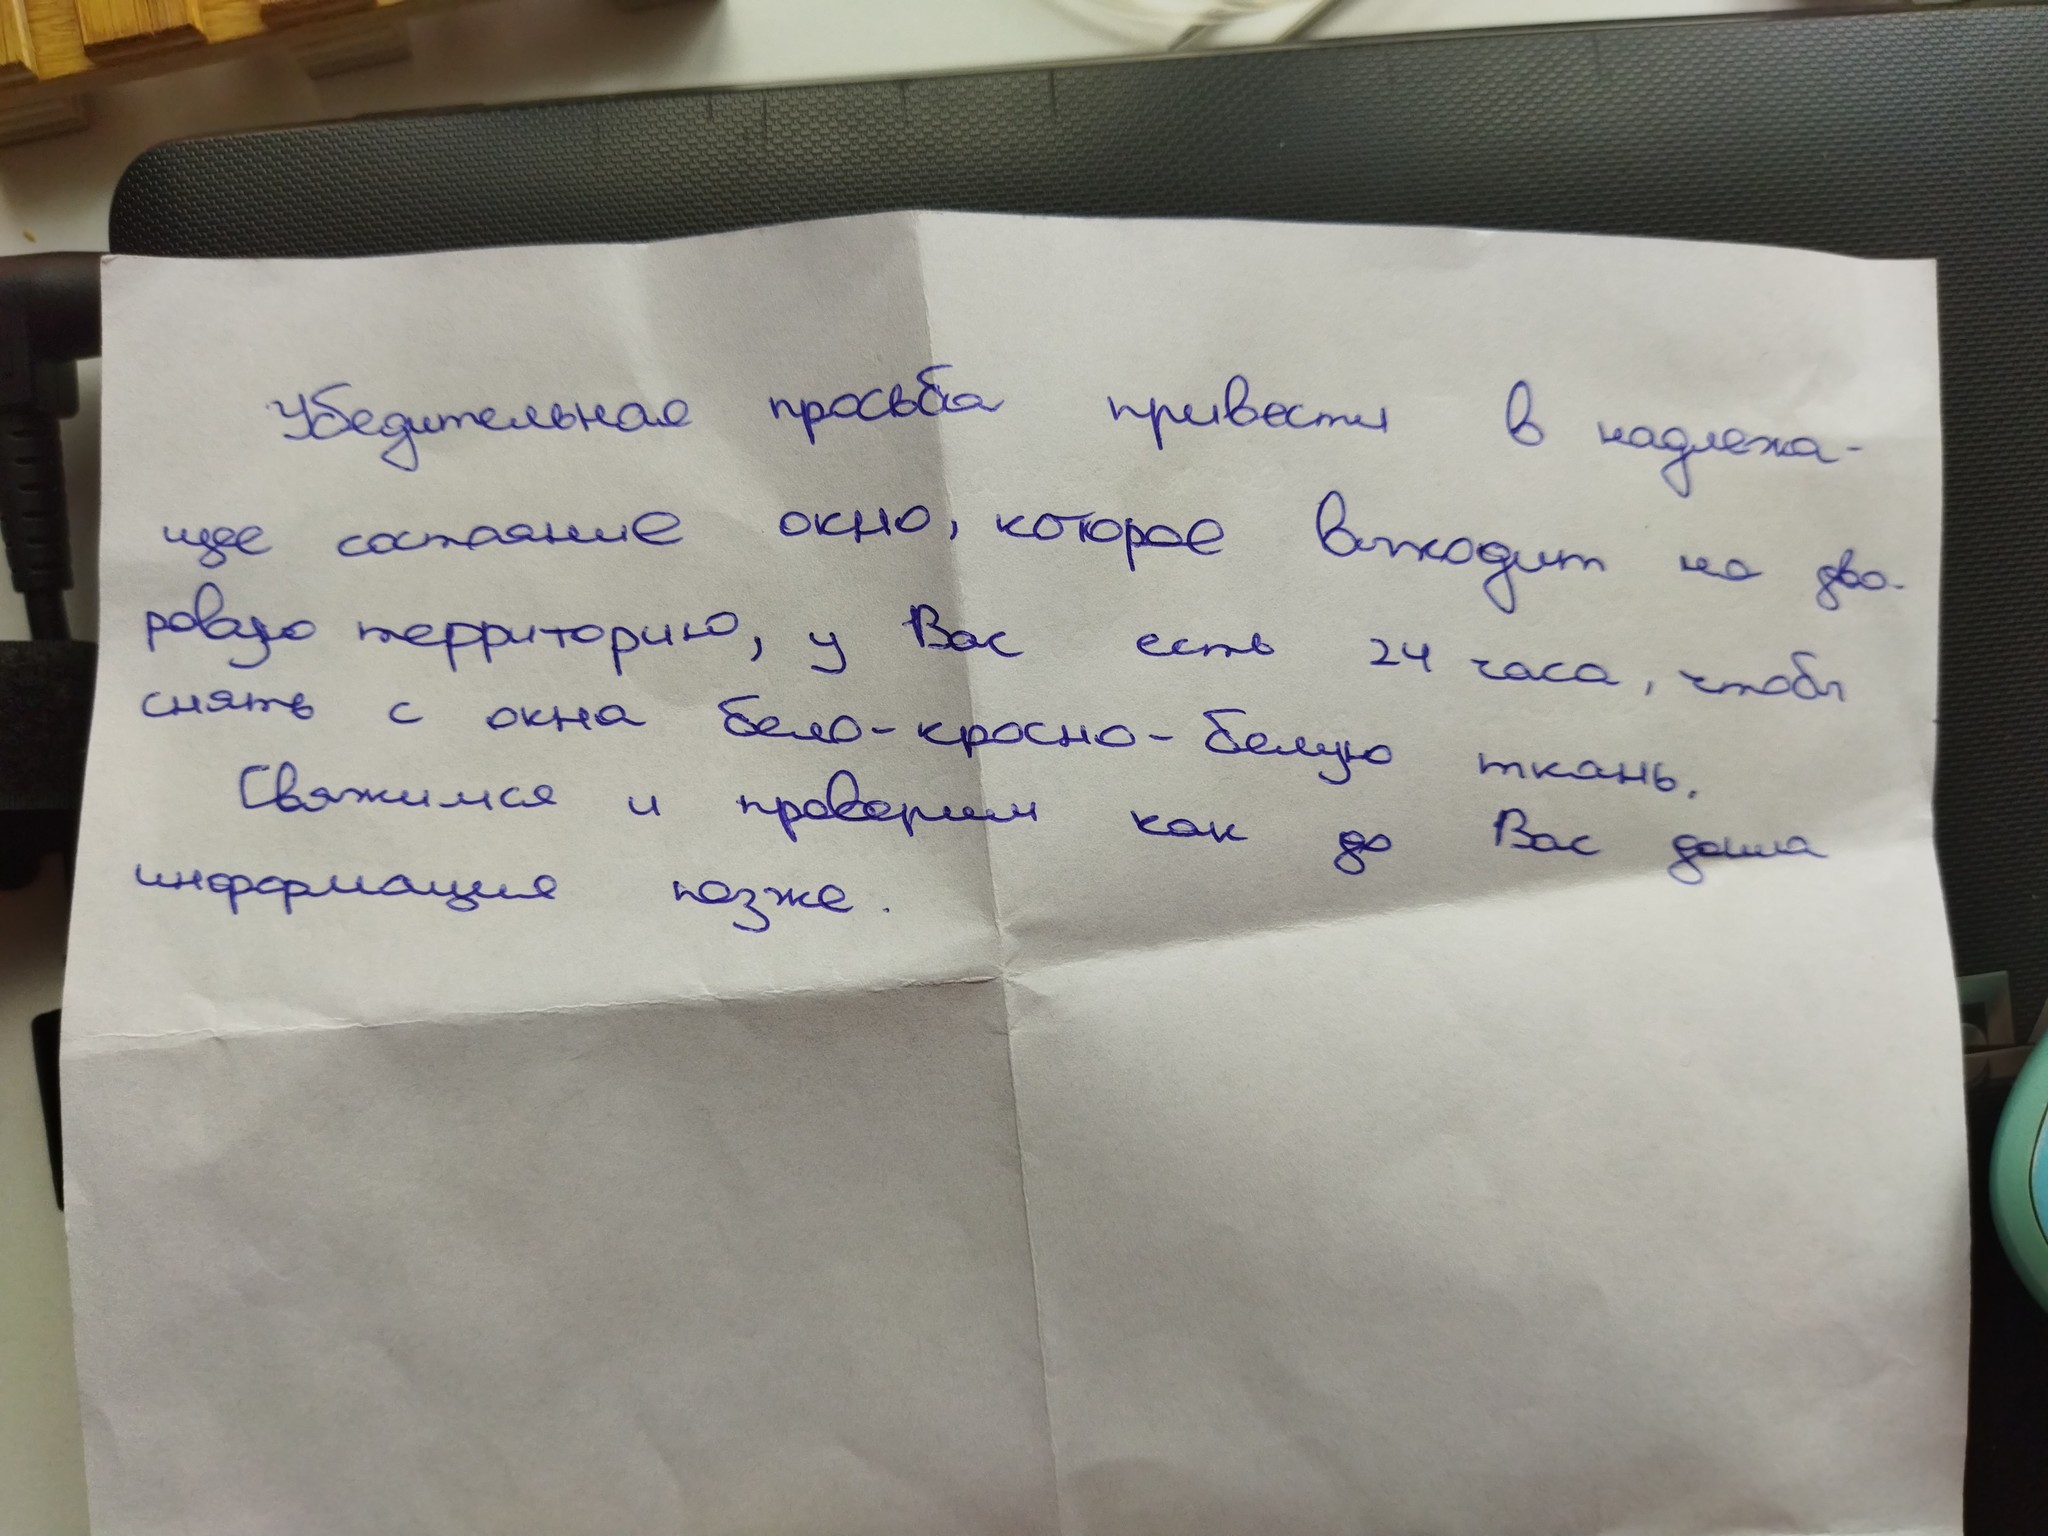 Убедительная просьба привести в надлежа-
щее состояние окно, которое выходит на дво-
ровую территорию, у Вас есть 24 часа, чтобы
снять с окна бело-красно-белую ткань.
Свяжимся и проверим как до Вас дошла
информация позже.